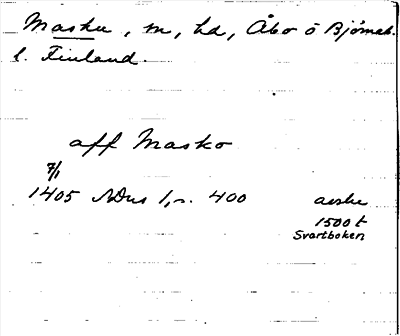 Masku, sn, hd, Åbo o Bjömeb.
l. Finland.
aff Masko
7/1
1405 SDns 1, s. 400 avskr
1500 t
Svartboken